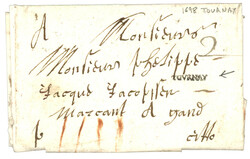 1698 TOURNAY
A Monsieur
Monsieur phelippe
TOVRNAY
Jacque Jacopssen
Marcant A gand
p citto